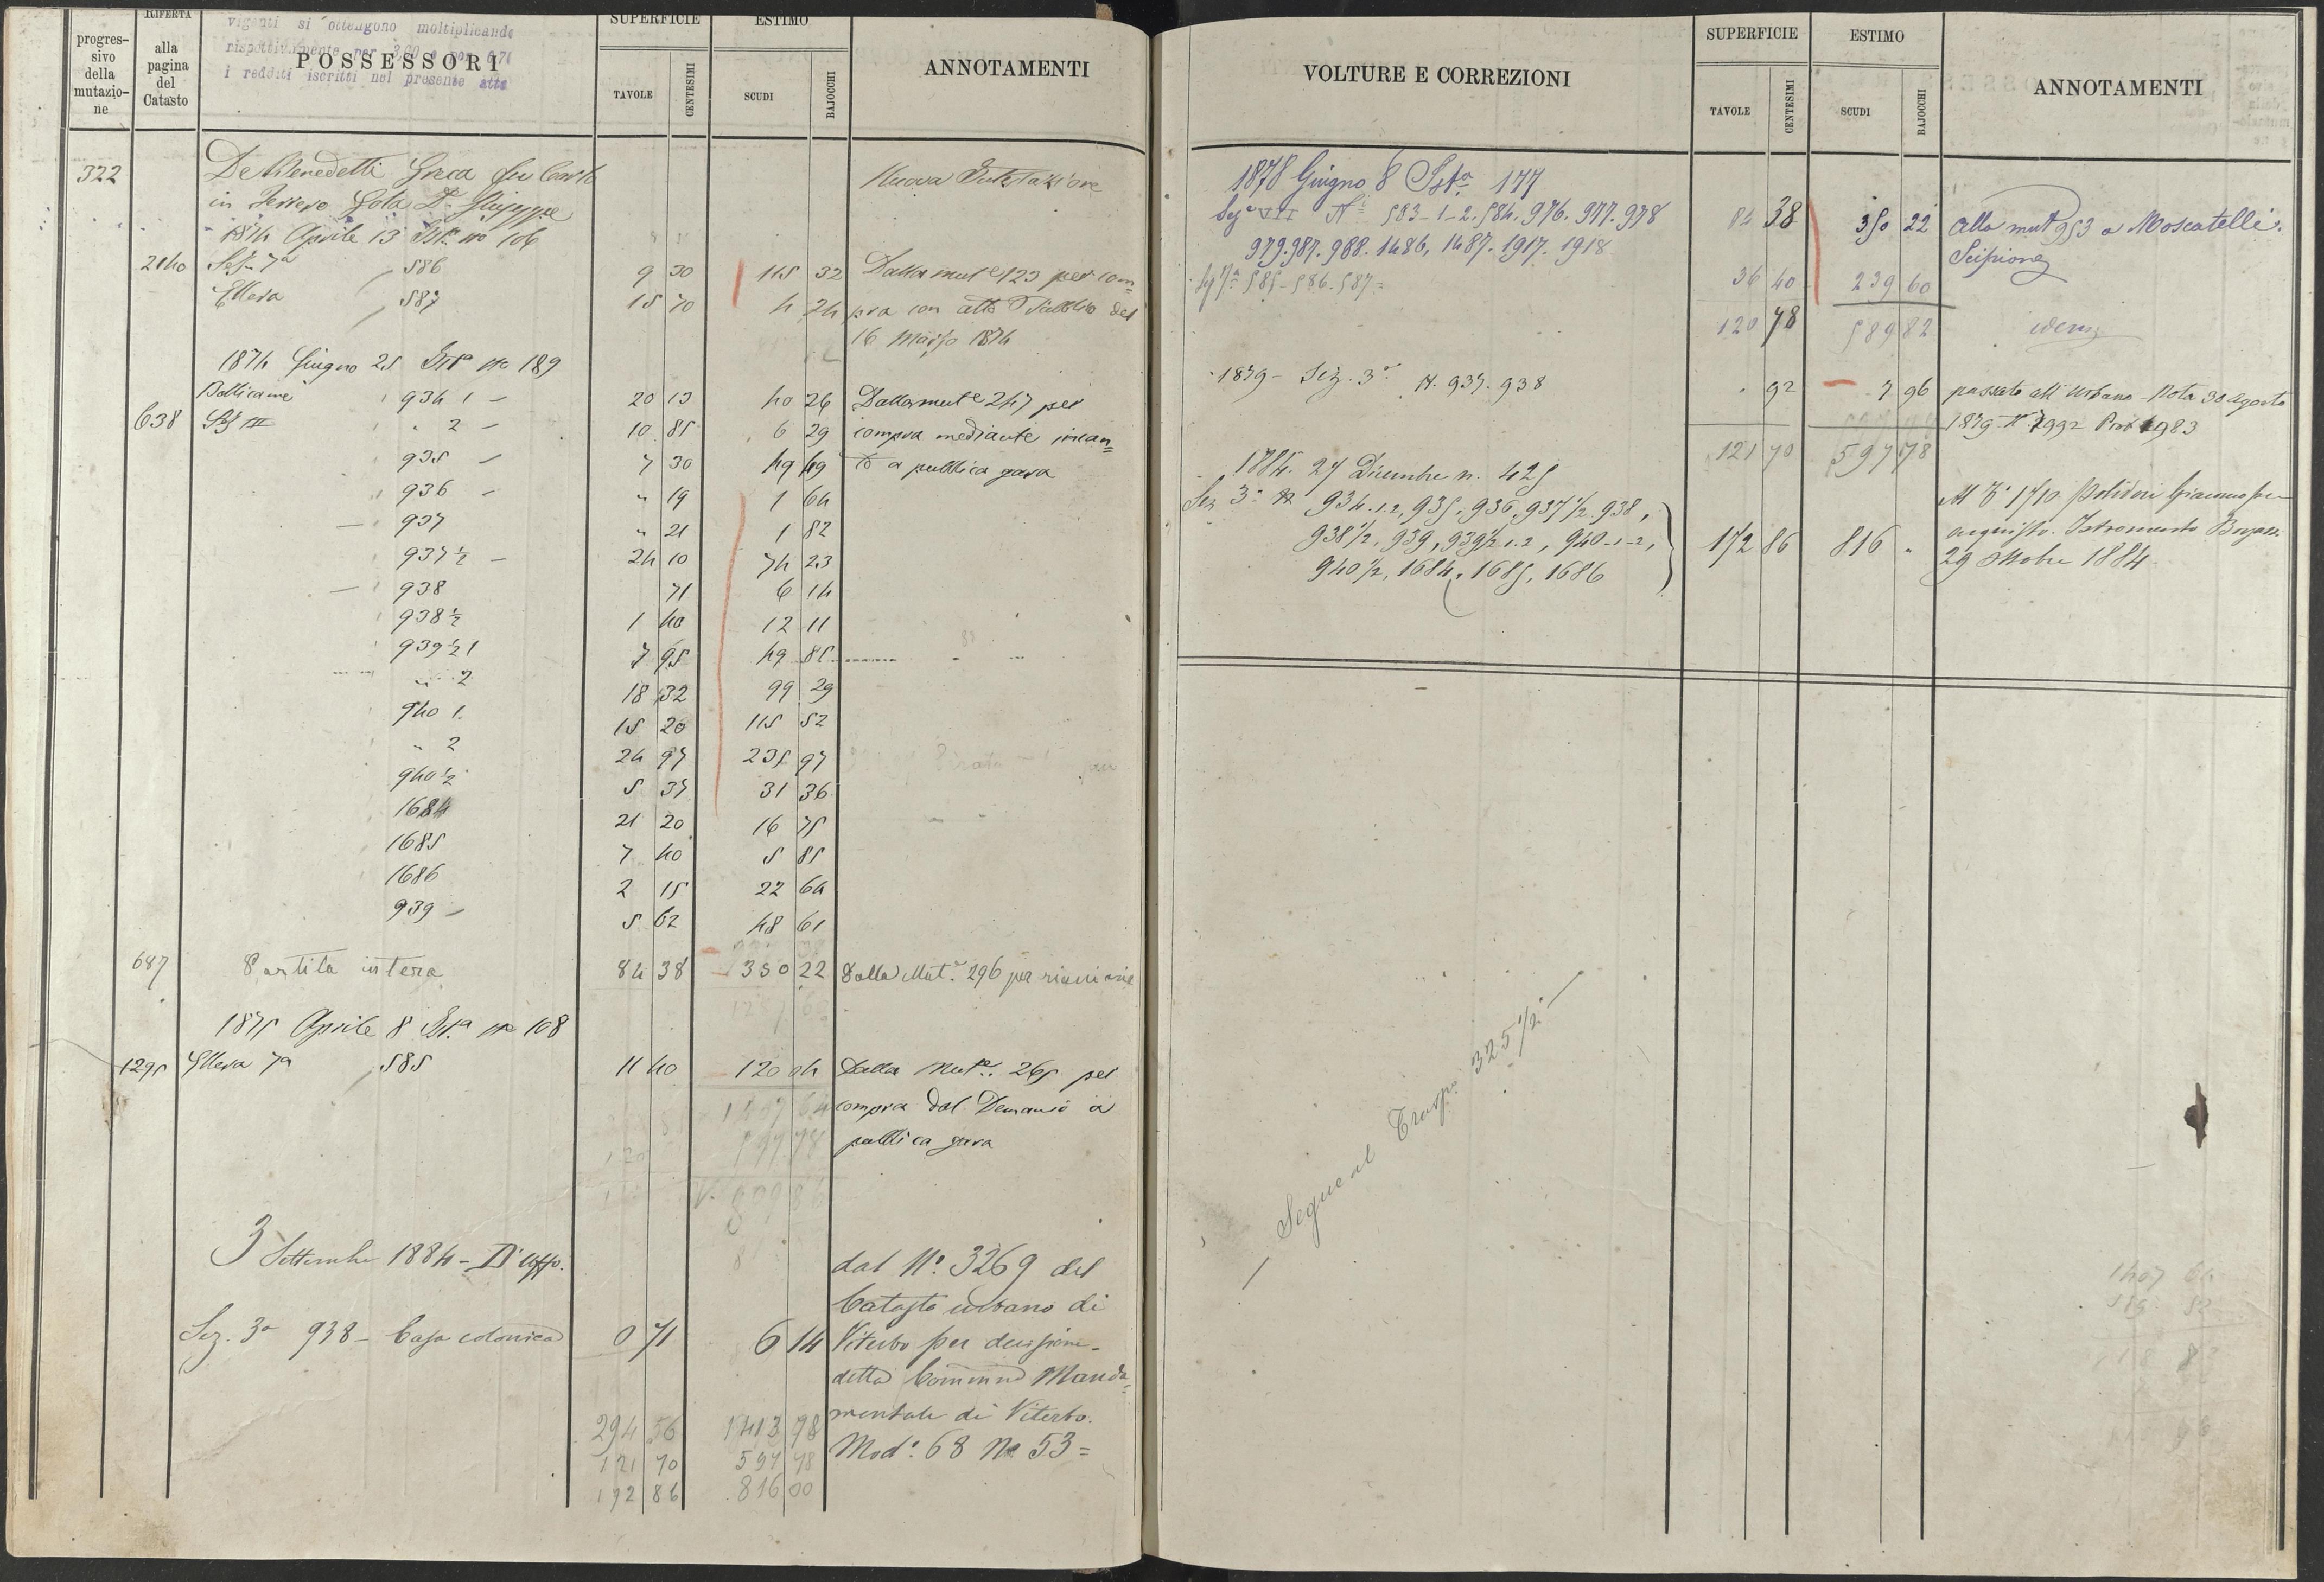 progres-
sivo
della
mutazio-
ne
RIFERTA
alla
pagina
del
Catasto
vigenti si ottengono moltiplicando
rispettivamente per 3,00 e per 0,70
i redditi iscritti nel presente atto
POSSESSORI
SUPERFICIE
TAVOLE CENTESIMI
ESTIMO
SCUDI BAJOCCHI
ANNOTAMENTI
322 De Benedetti fu Carlo Nuova Intestazione
in Dr. Giuseppe
1874 Aprile 13 Ista no 106
2140 Sez. 7a 586 9 30 115 32 Dalla mute 123 per com=
Ellera 587 15 70 4 24 pra con atto Pubblico del
16 Marzo 1874
1874 Giugno 25 Ista no 189
Bullicame 934 1 - 20 13 40 26 Dalla mute 247 per
638 Sez III " 2 - 10 85 6 29 compra mediante incan=
935 - 7 30 49 49 to a pubblica gara
936 - " 19 1 64
937 " 21 1 82
937 ½ - 24 10 74 23
938 71 6 14
938 ½ 1 40 12 11
939 ½ 1 7 95 49 85
" 2 18 32 99 29
940 1 15 20 115 52
" 2 24 97 235 97
940 ½ 5 37 31 36
1684 21 20 16 75
1685 7 40 5 85
1686 2 15 22 64
939 - 5 62 48 61
687 Partita intera 84 38 350 22 Dalla Mut.e 296 per riunione
1875 Aprile 8 Ista no 108
1295 Ellera 7a 585 11 40 120 04 Dalla Mute. 265 per
compra dal Demanio a
pubblica gara
3 Settembre 1884 -
dal N.° 3269 del
Catasto urbano di
Sez. 3a 938 - Casa colonica 0 71 6 14 Viterbo per decisione
della Commne Manda=
mentale di Viterbo.
294 56 1413 98
Mod.° 68 No 53 =
121 70 597 78
172 86 816 00
VOLTURE E CORREZIONI
SUPERFICIE
TAVOLE CENTESIMI
ESTIMO
SCUDI BAJOCCHI
ANNOTAMENTI
1878 Giugno 8 Ista 177
Seze VII N° 583-1-2. 584. 976. 977. 978 84 38 350 22 Alla mut 953 a Moscatelli
979. 987. 988. 1486, 1487. 1917. 1918 Scipione
Sez 7a 585-586-587= 36 40 239 60
120 78 589 82 idem
1879 - Sez. 3a N. 937. 938 . 92 7 96 passato all'Urbano - Nota 30 Agosto
1879 N. 7992 Prot 1983
121 70 597 78
1884. 27 Dicembre n. 425
Sez 3a N 934.1.2, 935, 936, 937 ½, 938, Al N° 1710 Polidori Giacomo per
938 ½, 939, 939 ½ 1.2, 940-1-2, 172 86 816 " acquisto. Istromento
940 ½, 1684, 1685, 1686 29 Ottobre 1884
— Segue al Trasp. 325 ½ —
1407 64